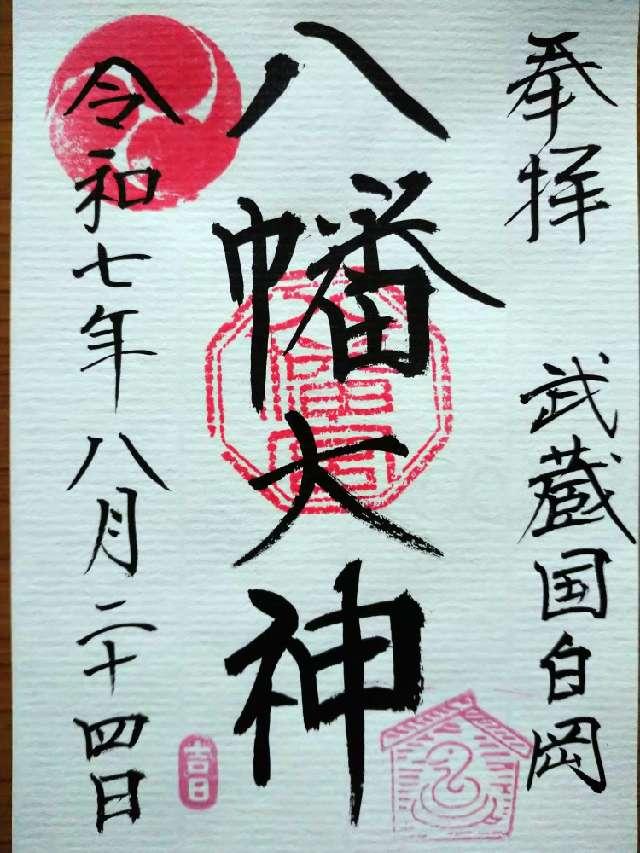 奉拝
武蔵国白岡
八幡大神
令和七年八月二十四日
八幡宮
吉日